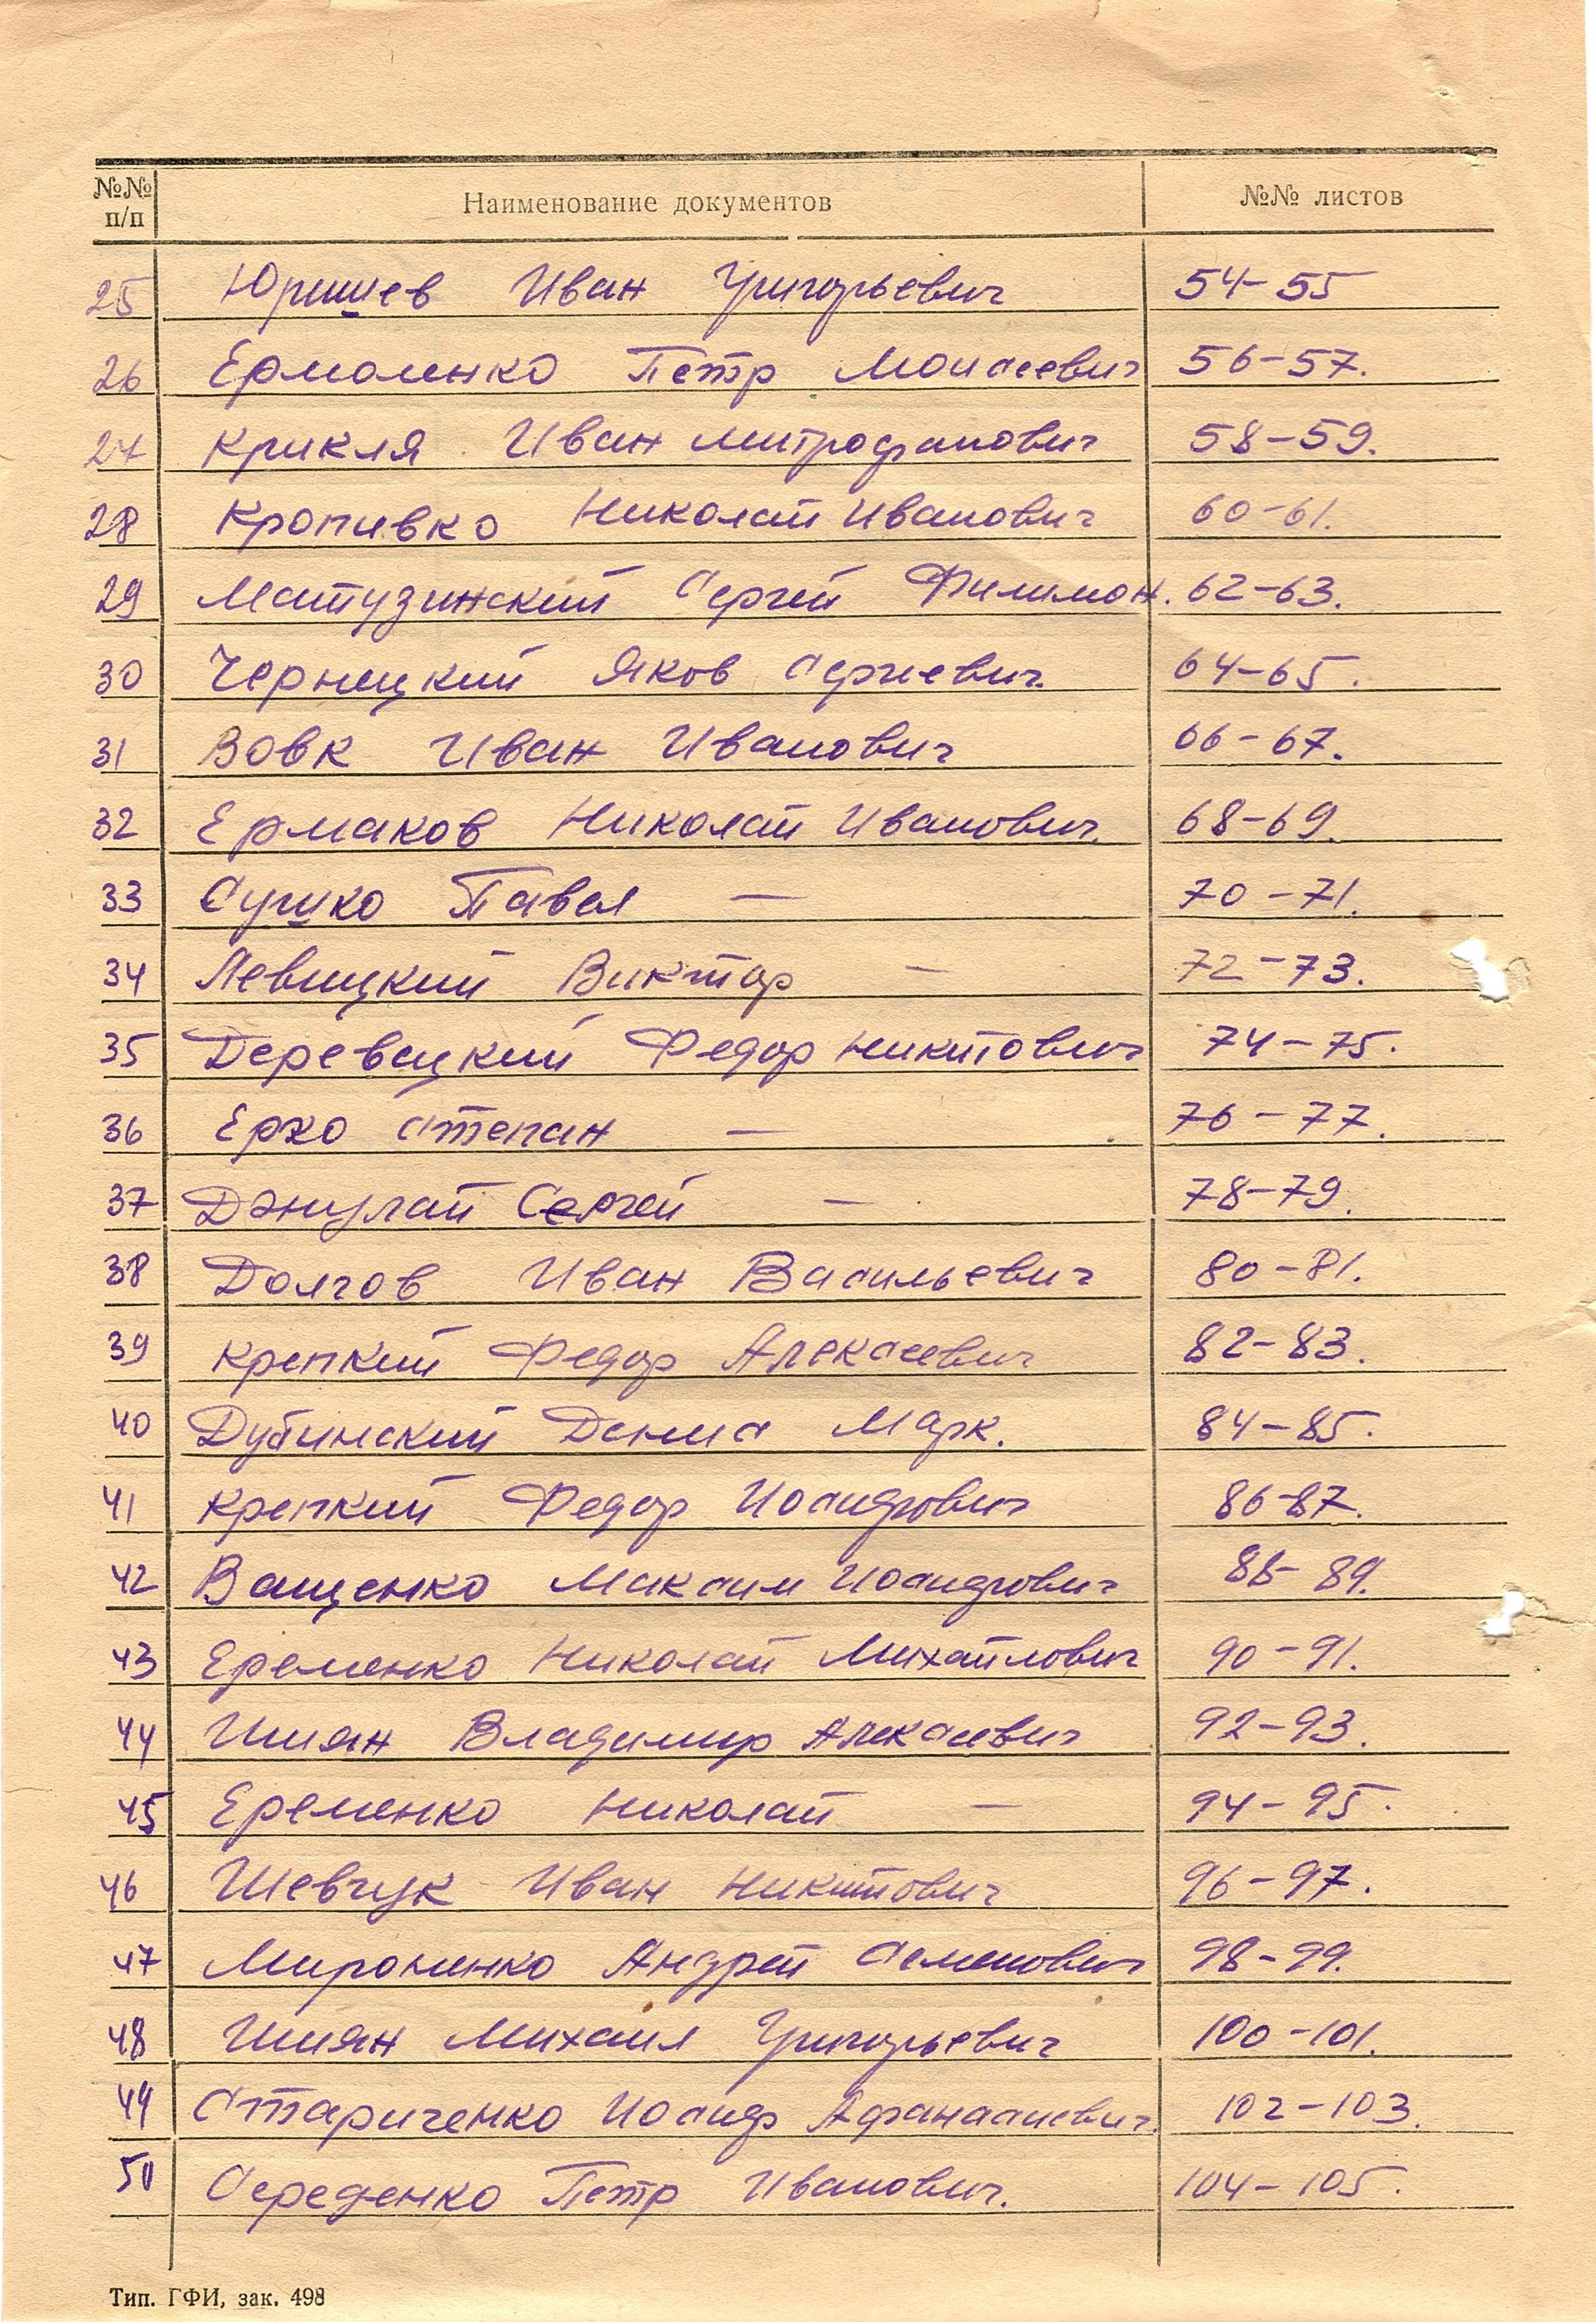 №№ п/п Наименование документов №№ листов
25 Юришев Иван Григорьевич 54-55
26 Ермоленко Петр Моисеевич 56-57.
27 Крикля Иван Митрофанович 58-59.
28 Кропивко Николай Иванович 60-61.
29 Матузинский Сергей Филимон. 62-63.
30 Черницкий Яков Сергеевич. 64-65.
31 Вовк Иван Иванович 66-67.
32 Ермаков Николай Иванович. 68-69.
33 Сушко Павел — 70-71.
34 Левицкий Виктор — 72-73.
35 Деревецкий Федор Никитович 74-75.
36 Ерко Степан — 76-77.
37 Сергей — 78-79.
38 Долгов Иван Васильевич 80-81.
39 Крепкий Федор Алексеевич 82-83.
40 Дубинский Денис Марк. 84-85.
41 Крепкий Федор Иосифович 86-87.
42 Ващенко Максим Иосифович 88-89.
43 Еременко Николай Михайлович 90-91.
44 Шиян Владимир Алексеевич 92-93.
45 Еременко Николай — 94-95.
46 Шевчук Иван Никитович 96-97.
47 Мироненко Андрей Семенович 98-99.
48 Шиян Михаил Григорьевич 100-101.
49 Стариченко Иосиф Афанасиевич. 102-103.
50 Середенко Петр Иванович. 104-105.
Тип. ГФИ, зак. 498